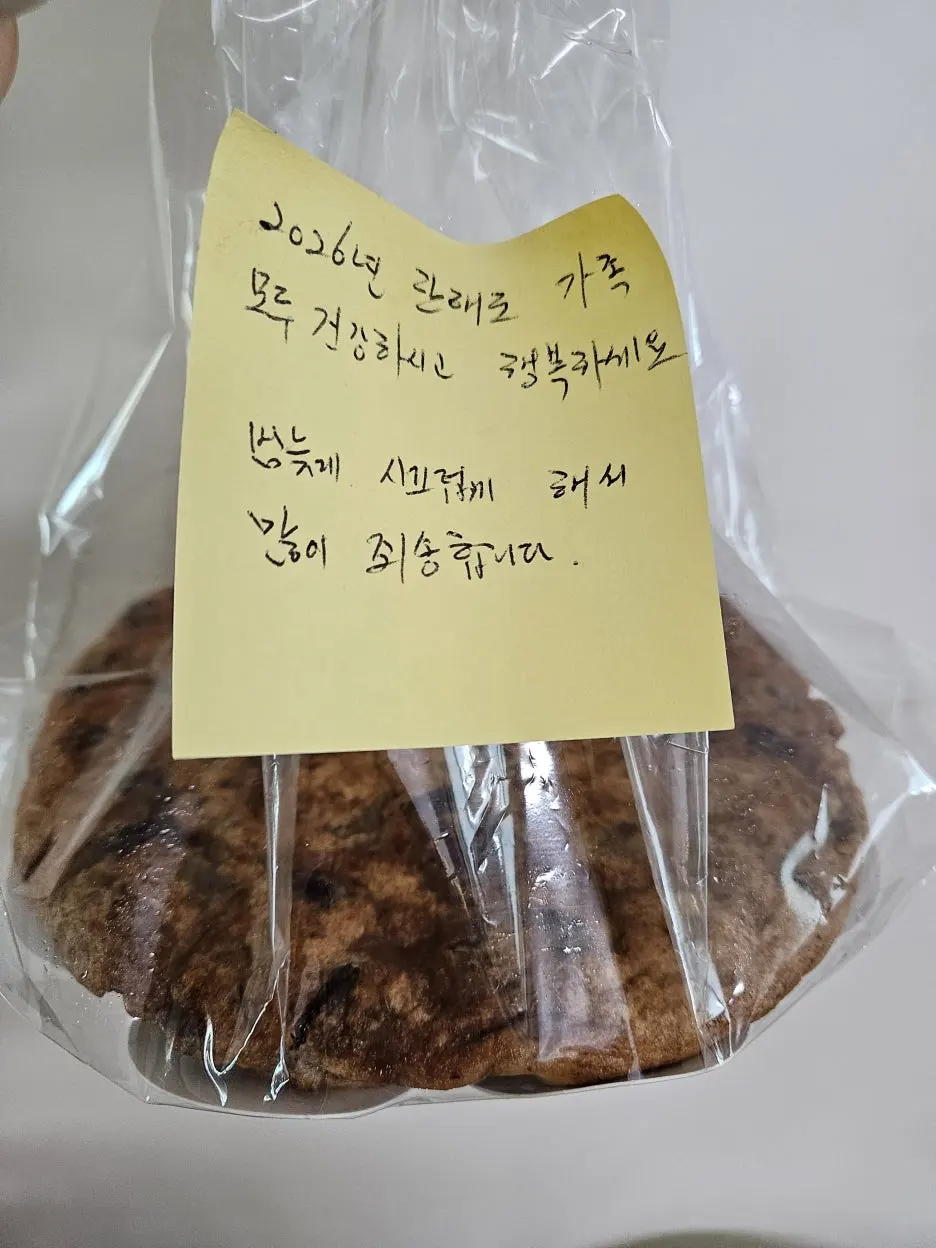 2026년 한해도 가족
모두 건강하시고 행복하세요
밤늦게 시끄럽게 해서
많이 죄송합니다.